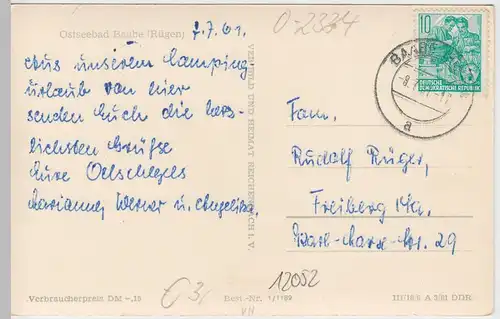 Ostseebad Baabe (Rügen)
7.7.61.
O-2334
Aus unserem Camping-
urlaub von hier
senden Euch die herz-
lichsten Grüße
Eure Oelschlegels
Marianne, Werner u. Angelika.
VERLAG BILD UND HEIMAT REICHENBACH I. V.
10
DEUTSCHE
DEMOKRATISCHE REPUBLIK
BAABE
a
Fam.
Rudolf Rüger,
Freiberg i/Sa.
Karl-Marx-Str. 29
Verbraucherpreis DM -,18
€3,
Best.-Nr. 1/1189
VII
12052
III/18/6 A 3/61 DDR